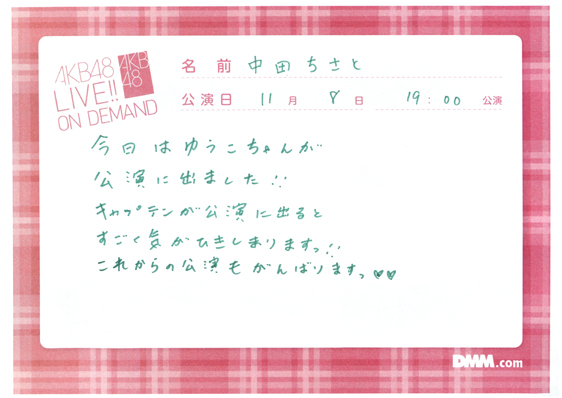 AKB48
LIVE!!
ON DEMAND
AKB
48
名前 中田ちさと
公演日 11月 8日 19:00 公演
今日はゆうこちゃんが
公演に出ました!!
キャプテンが公演に出ると
すごく気がひきしまりますっ!!
これからの公演もがんばりますっ♥♥
DMM.com